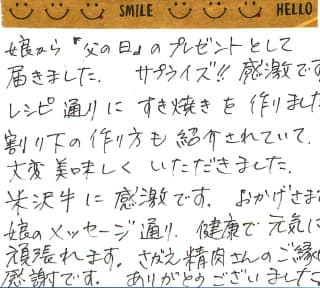 SMILE HELLO
娘から『父の日』のプレゼントとして
届きました。 サプライズ!! 感激です
レシピ通りに すき焼きを 作りました
割り下の作り方も 紹介されていて、
大変美味しく いただきました。
米沢牛に 感激です。 おかげさま
娘のメッセージ通り、健康で 元気に
頑張れます。さがえ精肉さんのご縁に
感謝です。 ありがとうございました。